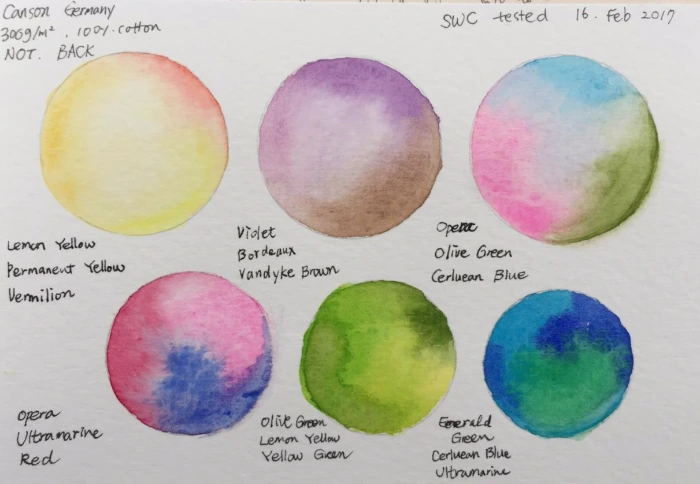 Canson Germany
306g/m², 100%. cotton
NOT. BACK
SWC tested 16. Feb 2017
Lemon Yellow
Permanent Yellow
Vermilion
Violet
Bordeaux
Vandyke Brown
Opera
Olive Green
Cerluean Blue
Opera
Ultramarine
Red
Olive Green
Lemon Yellow
Yellow Green
Emerald
Green
Cerluean Blue
Ultramarine